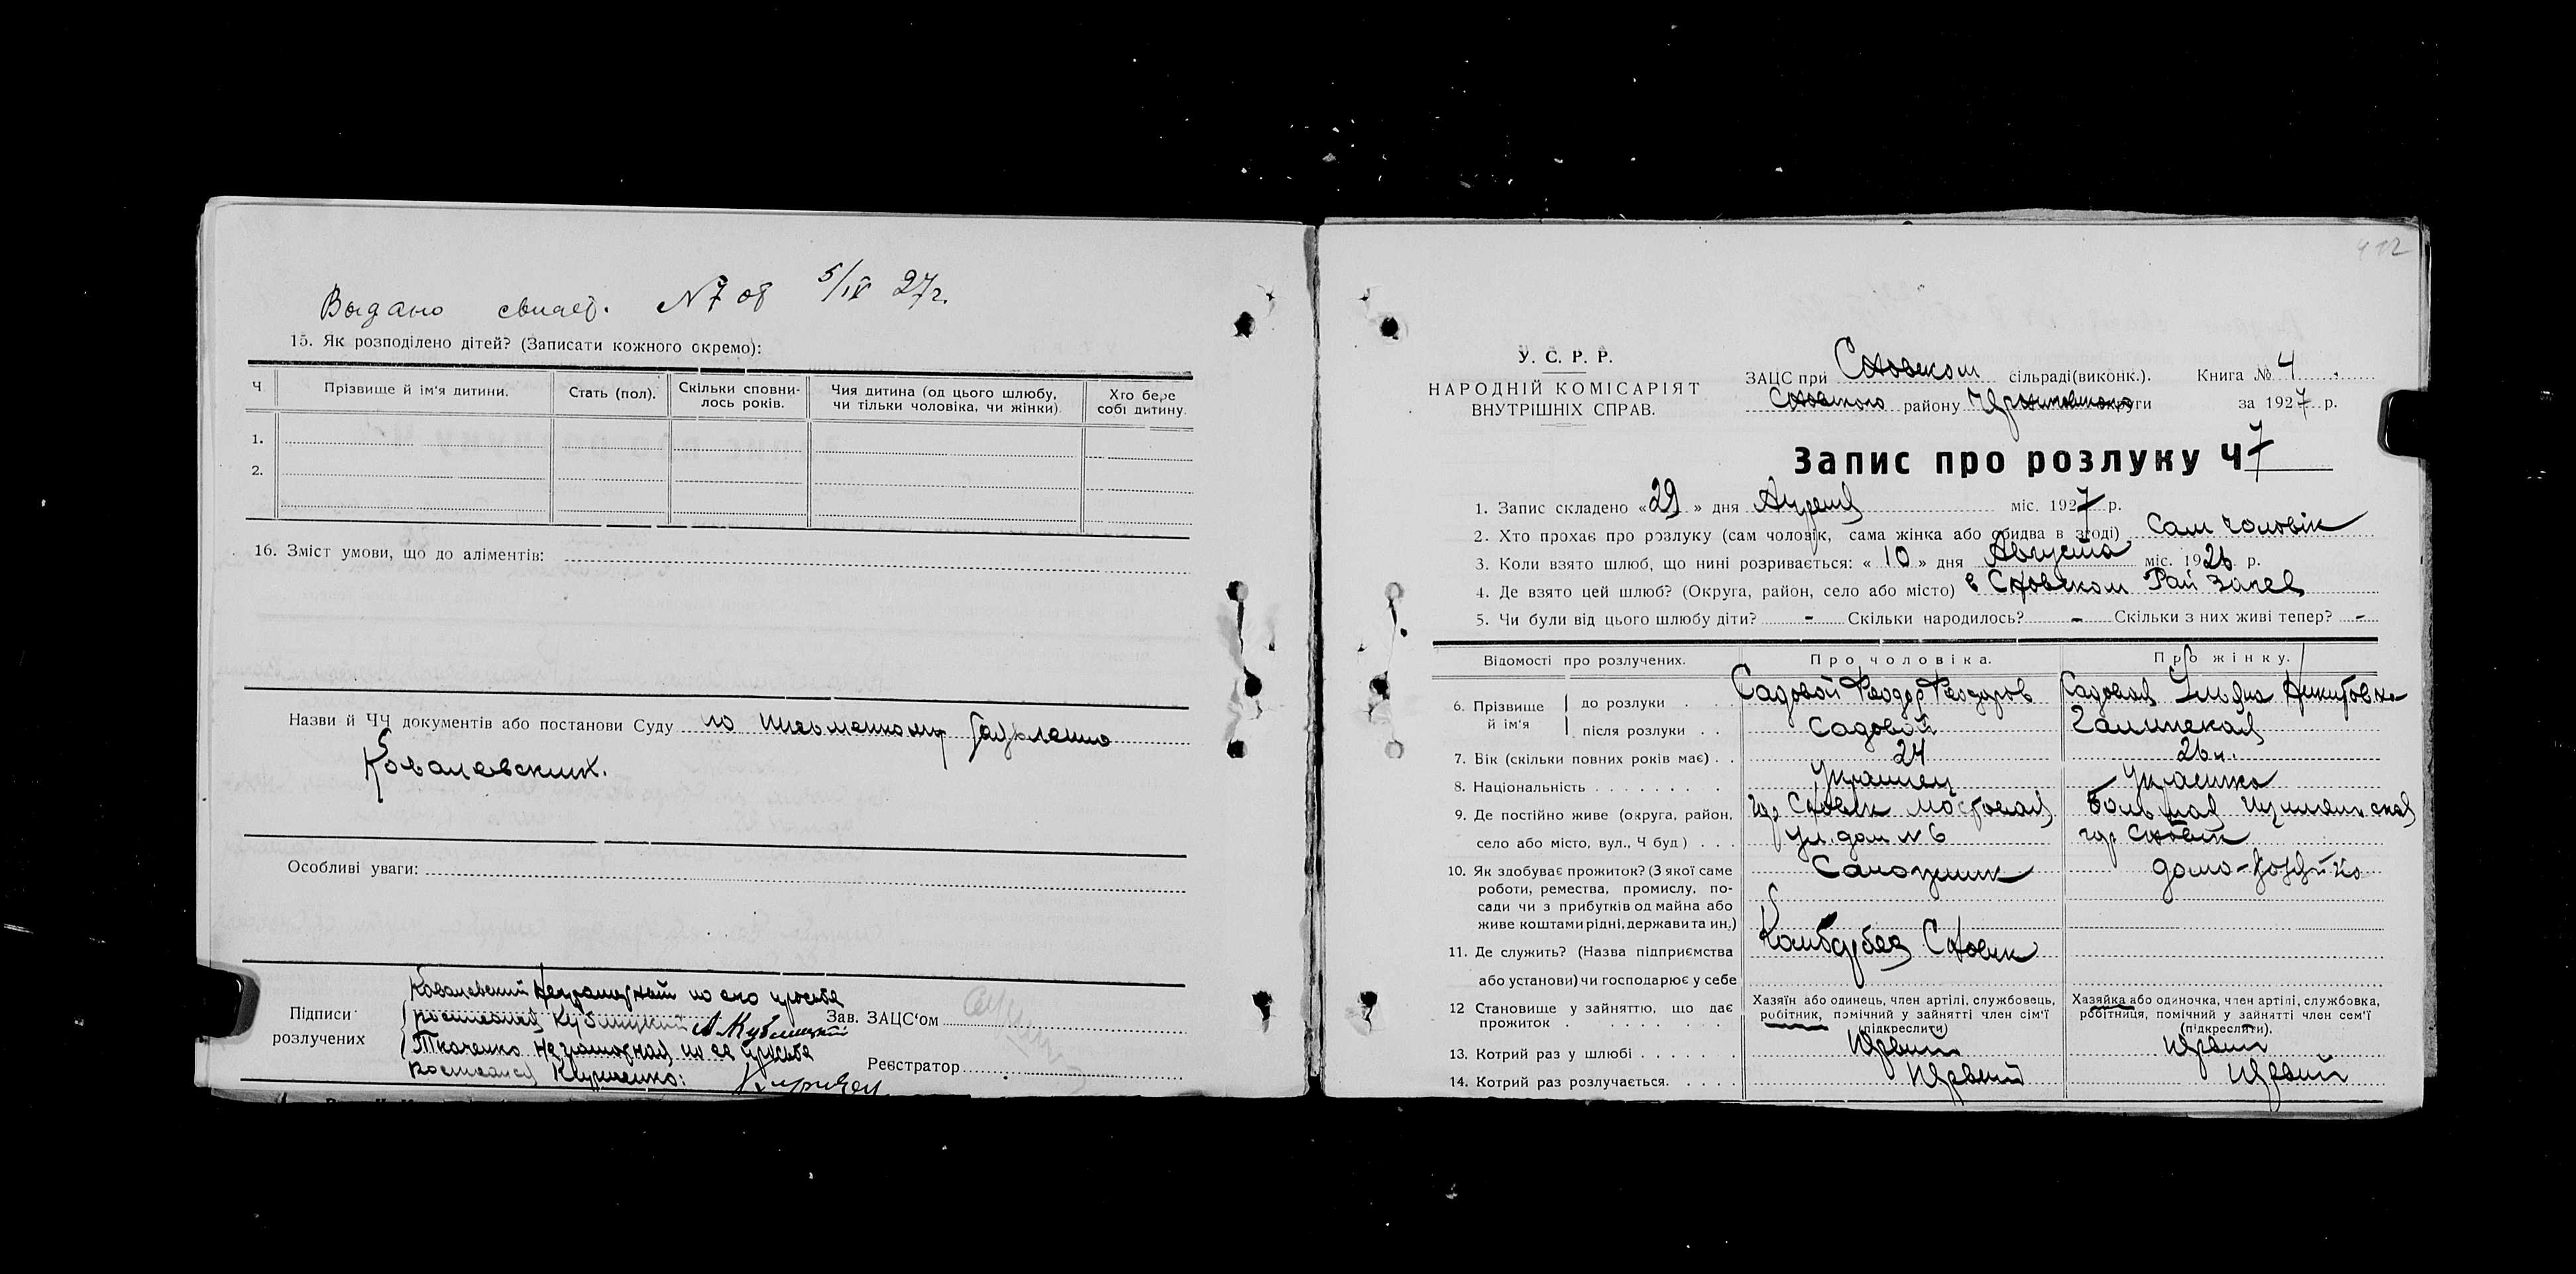 Выдано свидет. № 708 5/IX 27г.
15. Як розподілено дітей? (Записати кожного окремо):
Ч Прізвище й ім‘я дитини. Стать (пол). Скільки сповни- лось років. Чия дитина (од цього шлюбу, чи тільки чоловіка, чи жінки) Хто бере собі дитину.
1.
2.
16. Зміст умови, що до аліментів:
Назви й ЧЧ документів або постанови Суду по письменному заявлению
Ковалевских.
Особливі уваги:
Підписи розлучених
Ковалевский неграмотный по его просьбе
росписался Кублицкий А Кублицкий
Зав. ЗАЦС‘ом
Ткаченко неграмотная по ее просьбе
Росписался Кириченко:
Реєстратор
412
У. С. Р. Р.
НАРОДНІЙ КОМІСАРІЯТ
ВНУТРІШНІХ СПРАВ.
ЗАЦС при Сновском сільраді (виконк.). Книга № 4
Сновского району Черниговского округи за 1927 р.
Запис про розлуку Ч 7
1. Запис складено «29» дня Апреля міс. 1927 р.
2. Хто прохає про розлуку (сам чоловік, сама жінка або обидва в згоді) Сам чоловік
3. Коли взято шлюб, що нині розривається: «10» дня Августа міс. 1926 р.
4. Де взято цей шлюб? (Округа, район, село або місто) в Сновском Рай Загсе
5. Чи були від цього шлюбу діти? - Скільки народилось? - Скільки з них живі тепер? -
Відомості про розлучених. Про чоловіка. Про жінку.
6. Прізвище й ім‘я
до розлуки Садовой Феодор Феодоров Садовая Ульяна Никитовна
після розлуки Садовой Галинская
7. Вік (скільки повних років має) 24 26 л.
8. Національність Украинец Украинка
9. Де постійно живе (округа, район, гор Сновск Мостовая Большая
село або місто, вул., Ч буд) ул. дом № 6 гор Сновск
10. Як здобуває прожиток? (З якої саме Сапожник домо-хозяйка
роботи, ремества, промислу, по-
сади чи з прибутків од майна або
живе коштами рідні, держави та ин.)
11. Де служить? (Назва підприємства Сновск
або установи) чи господарює у себе
12 Становище у зайняттю, що дає прожиток
Хазяїн або одинець, член артілі, службовець, робітник, помічний у зайнятті член сім‘ї (підкреслити)
Хазяйка або одиночка, член артілі, службовка, робітниця, помічний у зайнятті член сем‘ї (підкреслити).
13. Котрий раз у шлюбі Первый Первый
14. Котрий раз розлучається. Первый Первый